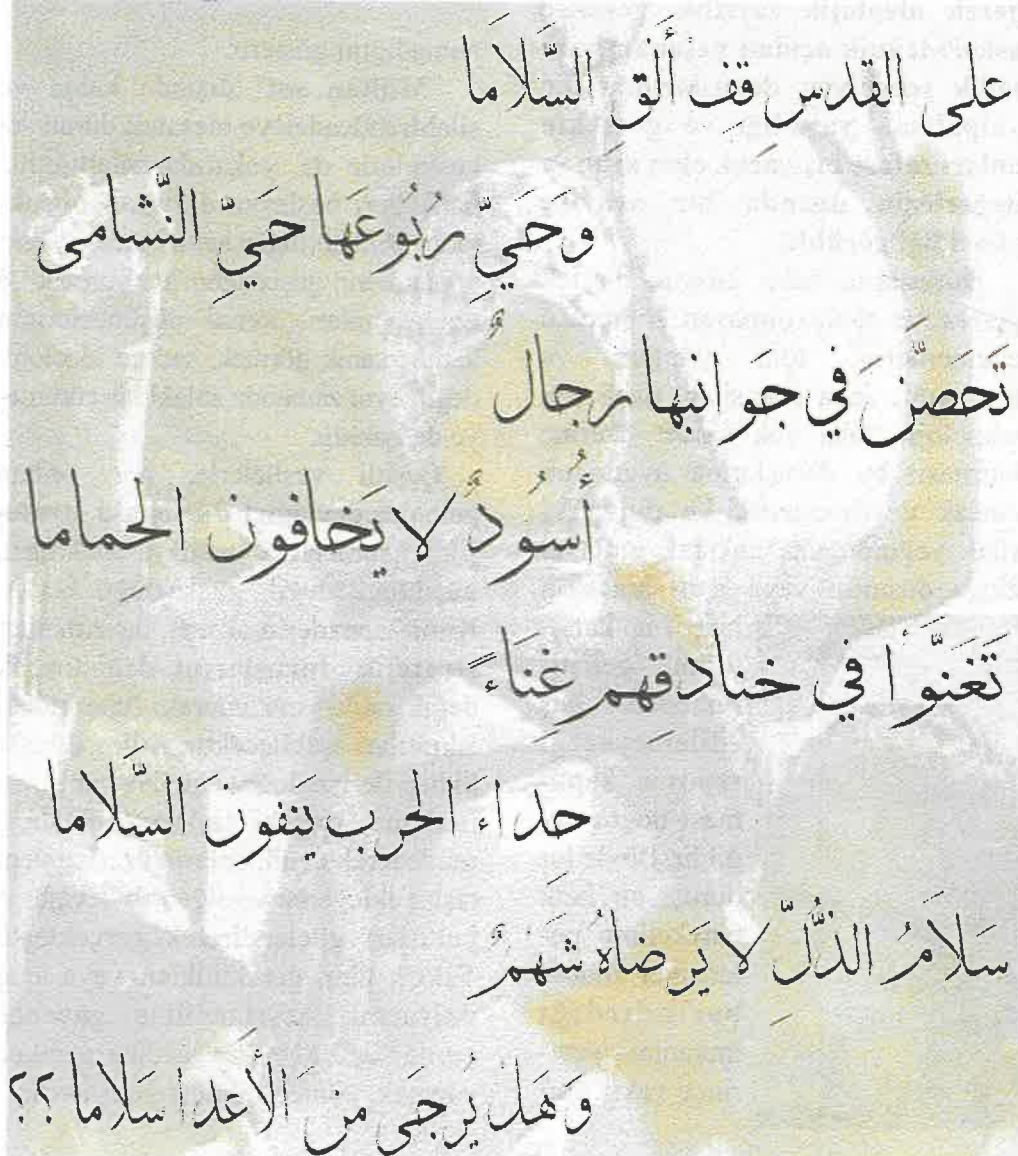 على القدس قف ألق السَّلاَما
وَحَيِّ رُبُوعَها حَيِّ النَّشامى
تَحَصَّنَ في جوانبها رجالٌ
أُسُودٌ لا يَخافون الحِماما
تَغَنَّوْا في خنادقِهم غِناءً
حداءَ الحرب يَنفونَ السَّلاما
سَلاَمُ الذُّلِّ لا يَرضاهُ شَهمٌ
وَهَل يُرجَى منَ الأَعدا سَلاما؟؟